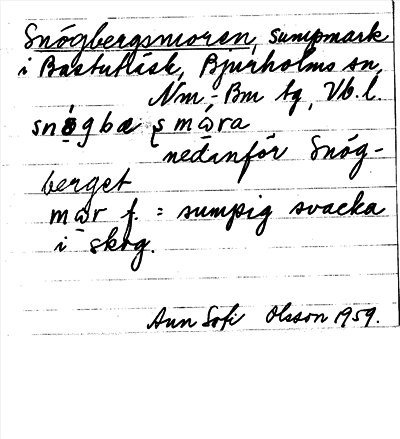 Snógbergsmoren, sumpmark
i Bastuträsk, Bjurholms sn,
Nm-, Bm tg, Vb. l.
nedanför Snóg-
berget
f. = sumpig svacka
i skog.
Ann Sofi Olsson 1959.